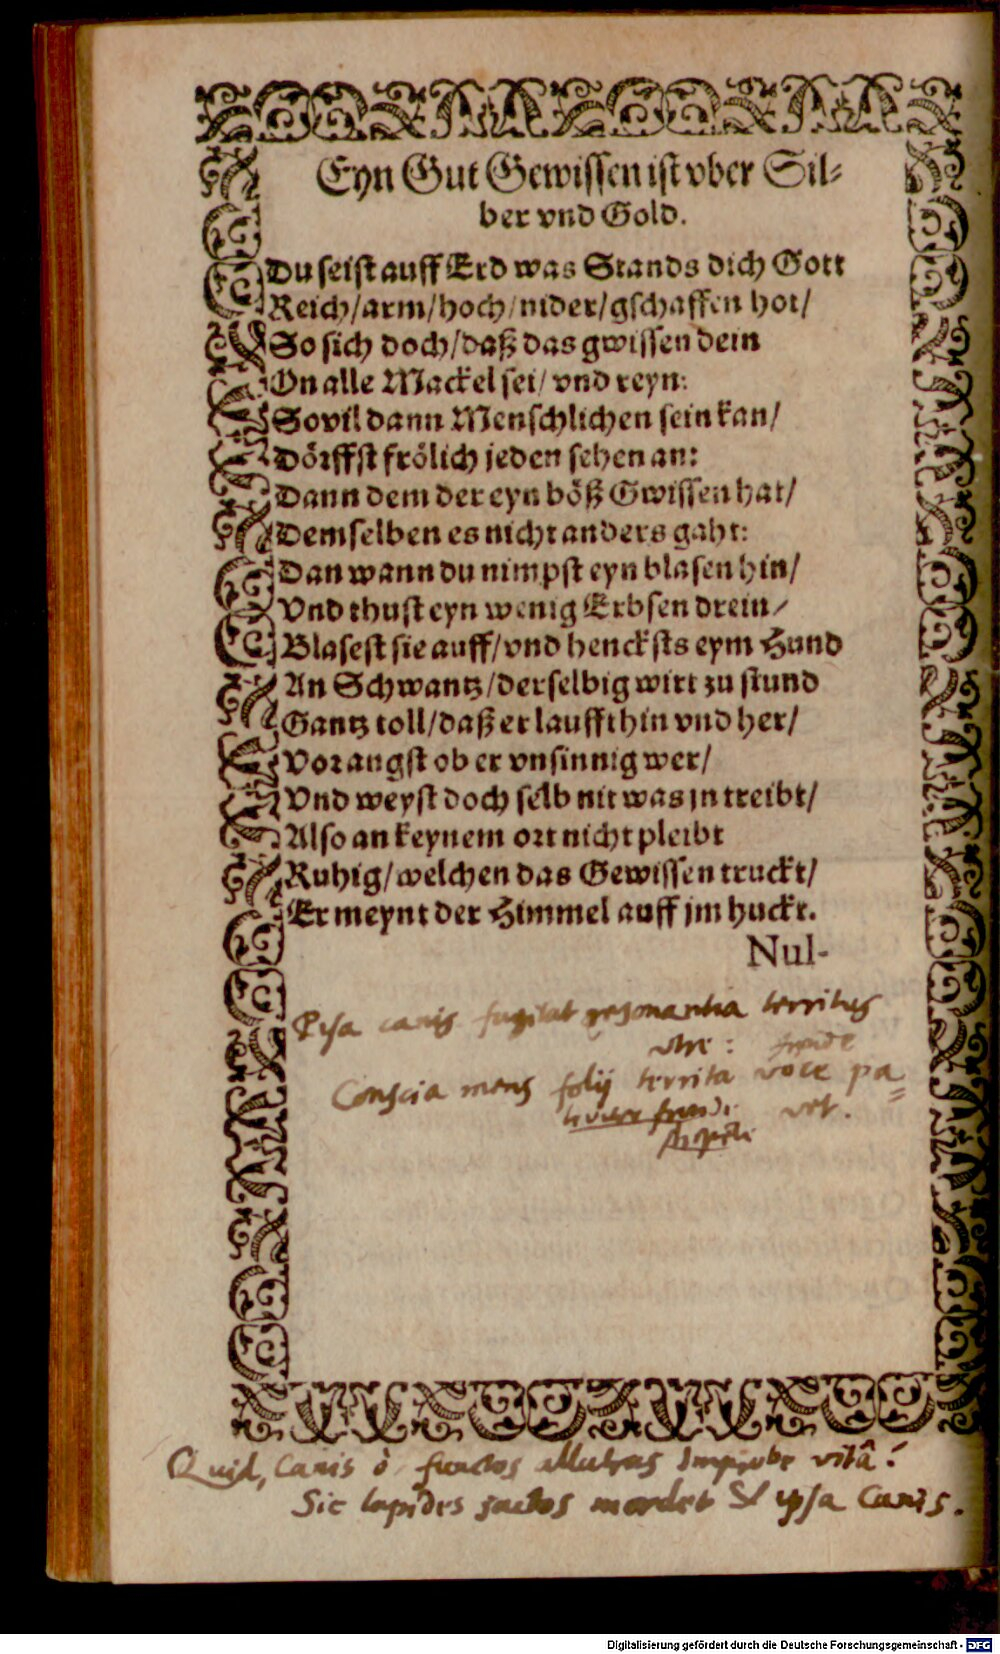 Eyn Gut Gewissen ist vber Sil-
ber vnd Gold.
Du seist auff Erd was Stands dich Gott
Reich/arm/hoch/nider/gschaffen hot/
So sich doch/daß das gwissen dein
On alle Mackel sei/vnd reyn:
Sovil dann Menschlichen sein kan/
Dörffst frölich jeden sehen an:
Dann dem der eyn böß Gwissen hat/
Demselben es nicht anders gaht:
Dan wann du nimpst eyn blasen hin/
Vnd thust eyn wenig Erbsen drein/
Blasest sie auff/vnd hencksts eym Hund
An Schwantz/derselbig wirt zu stund
Gantz toll/daß er laufft hin vnd her/
Vor angst ob er vnsinnig wer/
Vnd weyst doch selb nit was jn treibt/
Also an keynem ort nicht pleibt
Ruhig/welchen das Gewissen truckt/
Er meynt der Himmel auff jm huckt.
Nul-
Pisa canis fugitat resonantia territus
vtre : fronde
Conscia mens folij territa voce pa=
vet.
Quid, Canis ò functos allatras Improbe vitâ?
Sic lapides jactos mordet & ipsa Canis.
Digitalisierung gefördert durch die Deutsche Forschungsgemeinschaft - DFG